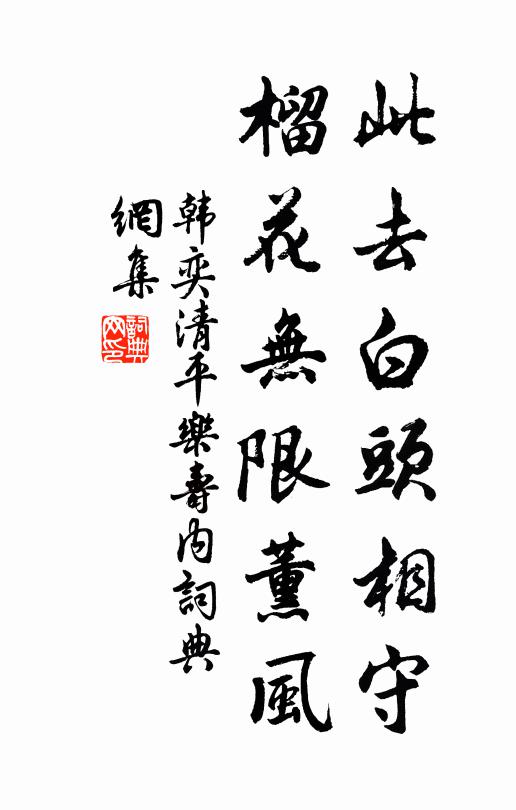 此去白頭相守
榴花無限薰風
韩奕清平樂壽内詞典
網集
詞典
网印